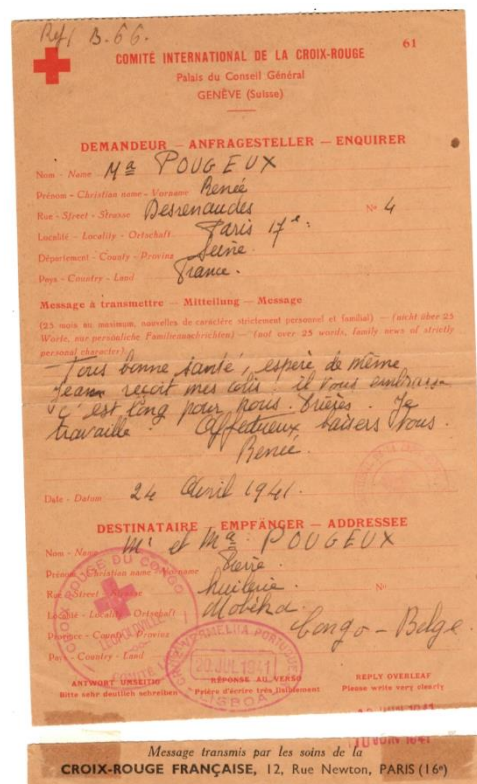 Réf/ B.66.
61
COMITÉ INTERNATIONAL DE LA CROIX-ROUGE
Palais du Conseil Général
GENÈVE (Suisse)
DEMANDEUR — ANFRAGESTELLER — ENQUIRER
Nom - Name Mᵃ POUGEUX
Prénom - Christian name - Vorname Renée
Rue - Street - Strasse Desrenaudes Nº 4
Localité - Locality - Ortschaft Paris 17ᵉ
Département - County - Provinz Seine.
Pays - Country - Land France.
Message à transmettre — Mitteilung — Message
(25 mots au maximum, nouvelles de caractère strictement personnel et familial) — (nicht über 25
Worte, nur persönliche Familiennachrichten) — (not over 25 words, family news of strictly
personal character).
Tous bonne santé, espère de même
Jean reçoit mes colis. il vous embrasse
c'est long pour nous. Je
travaille Affectueux baisers Vous.
Renée.
Date - Datum 24 Avril 1941.
DESTINATAIRE — EMPFÄNGER — ADDRESSEE
Nom - Name Mʳ et Mᵃ POUGEUX
Prénom - Christian name - Vorname Pierre
Rue - Street - Strasse huilerie Nº
Localité - Locality - Ortschaft
Province - County - Provinz Congo-Belge
Pays - Country - Land
CROIX ROUGE DU CONGO
LEOPOLDVILLE
COMITÉ
CRUZ VERMELHA PORTUGUESA
20 JUL 1941
LISBOA
ANTWORT UMSEITIG RÉPONSE AU VERSO REPLY OVERLEAF
Bitte sehr deutlich schreiben Prière d'écrire très lisiblement Please write very clearly
10 JUIN 1941
Message transmis par les soins de la
CROIX-ROUGE FRANÇAISE, 12, Rue Newton, PARIS (16ᵉ)